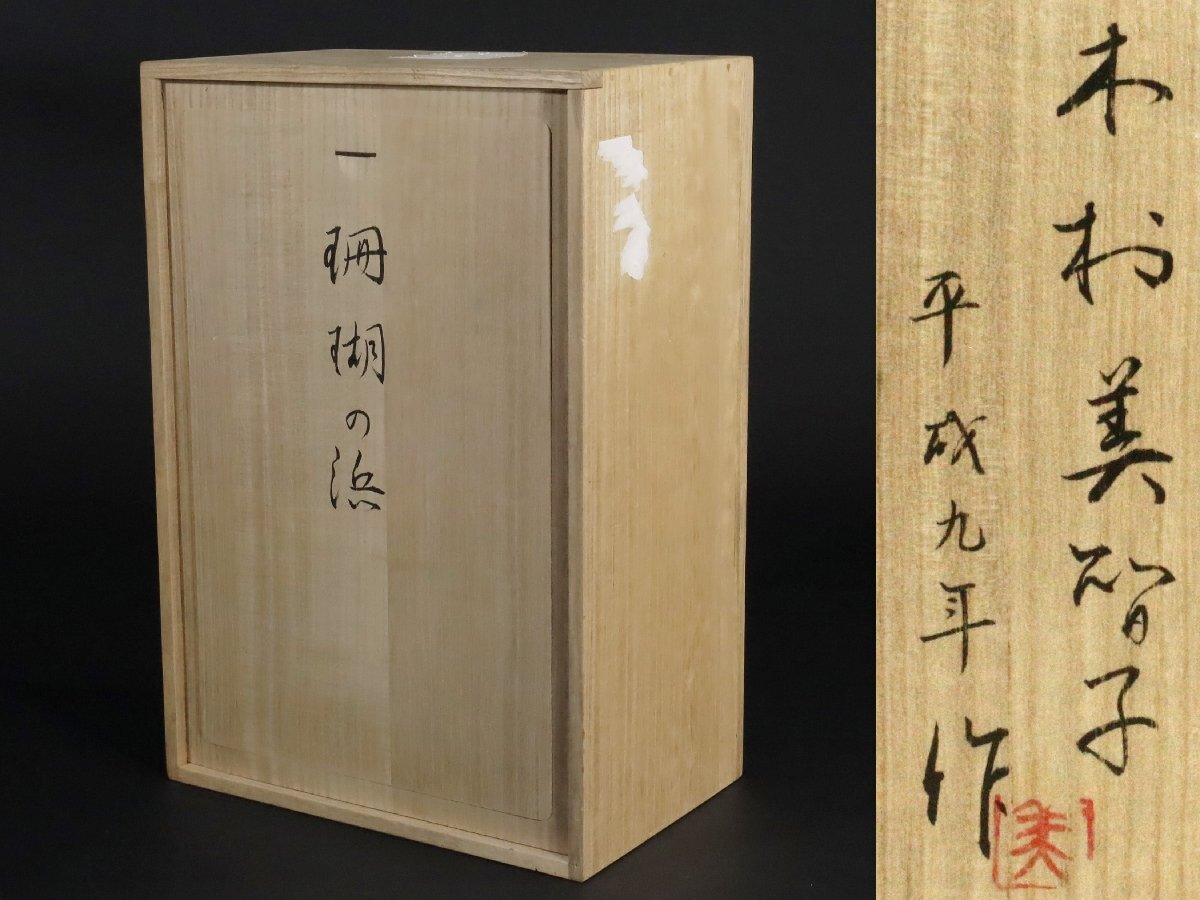 一 珊瑚の浜
木村美智子
平成九年 作
美